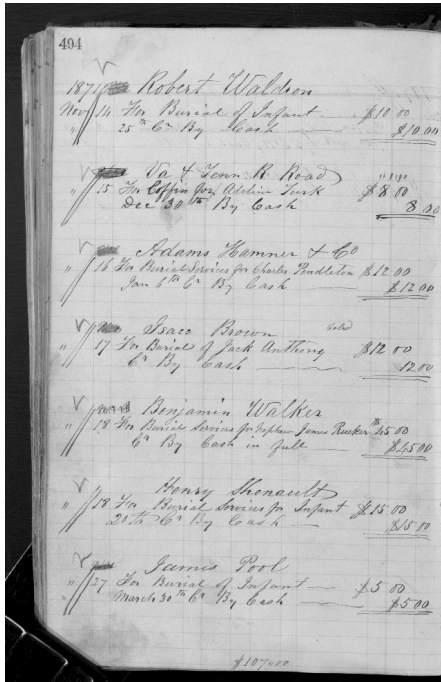 494
1871 Robert Waldron
Nov 14 For Burial of Infant $10 00
" 25th Cr By Cash $10 00
Va & Tenn R. Road
" 15 For Coffin for Adeline Turk $8 00
Dec 30th By Cash 8.00
Adams Hamner & Co
" 16 For Burial Services for Charles Pendleton $12.00
Jan 6th Cr By Cash $12.00
Isaac Brown Colrd
" 17 For Burial of Jack Anthony $12 00
Cr By Cash 12.00
Benjamin Walker
" 18 For Burial Services for Nephew James Rucker 45.00
Cr By Cash in full $45.00
Henry Shenault
" 18 For Burial Services for Infant $15.00
20th Cr By Cash $15.00
James Pool
" 27 For Burial of Infant $5 00
March 30th Cr By Cash $5.00
$107.00